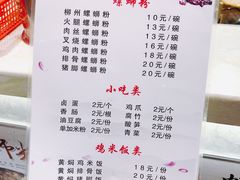 螺蛳粉
柳州螺蛳粉 10元/碗
火腿螺蛳粉 13元/碗
肉丝螺蛳粉 13元/碗
叉烧螺蛳粉 16元/碗
鸡肉螺蛳粉 16元/碗
排骨螺蛳粉 18元/碗
猪脚螺蛳粉 20元/碗
小吃类
卤蛋 2元/个 鸡爪 2元/个
香肠 2元/根 腐竹 2元/份
油豆腐 2元/份 酸笋 2元/份
单加米粉 2元/份 青菜 2元/份
鸡米饭类
黄焖鸡米饭 18元/份
黄焖排骨饭 20元/份
黄焖猪脚饭